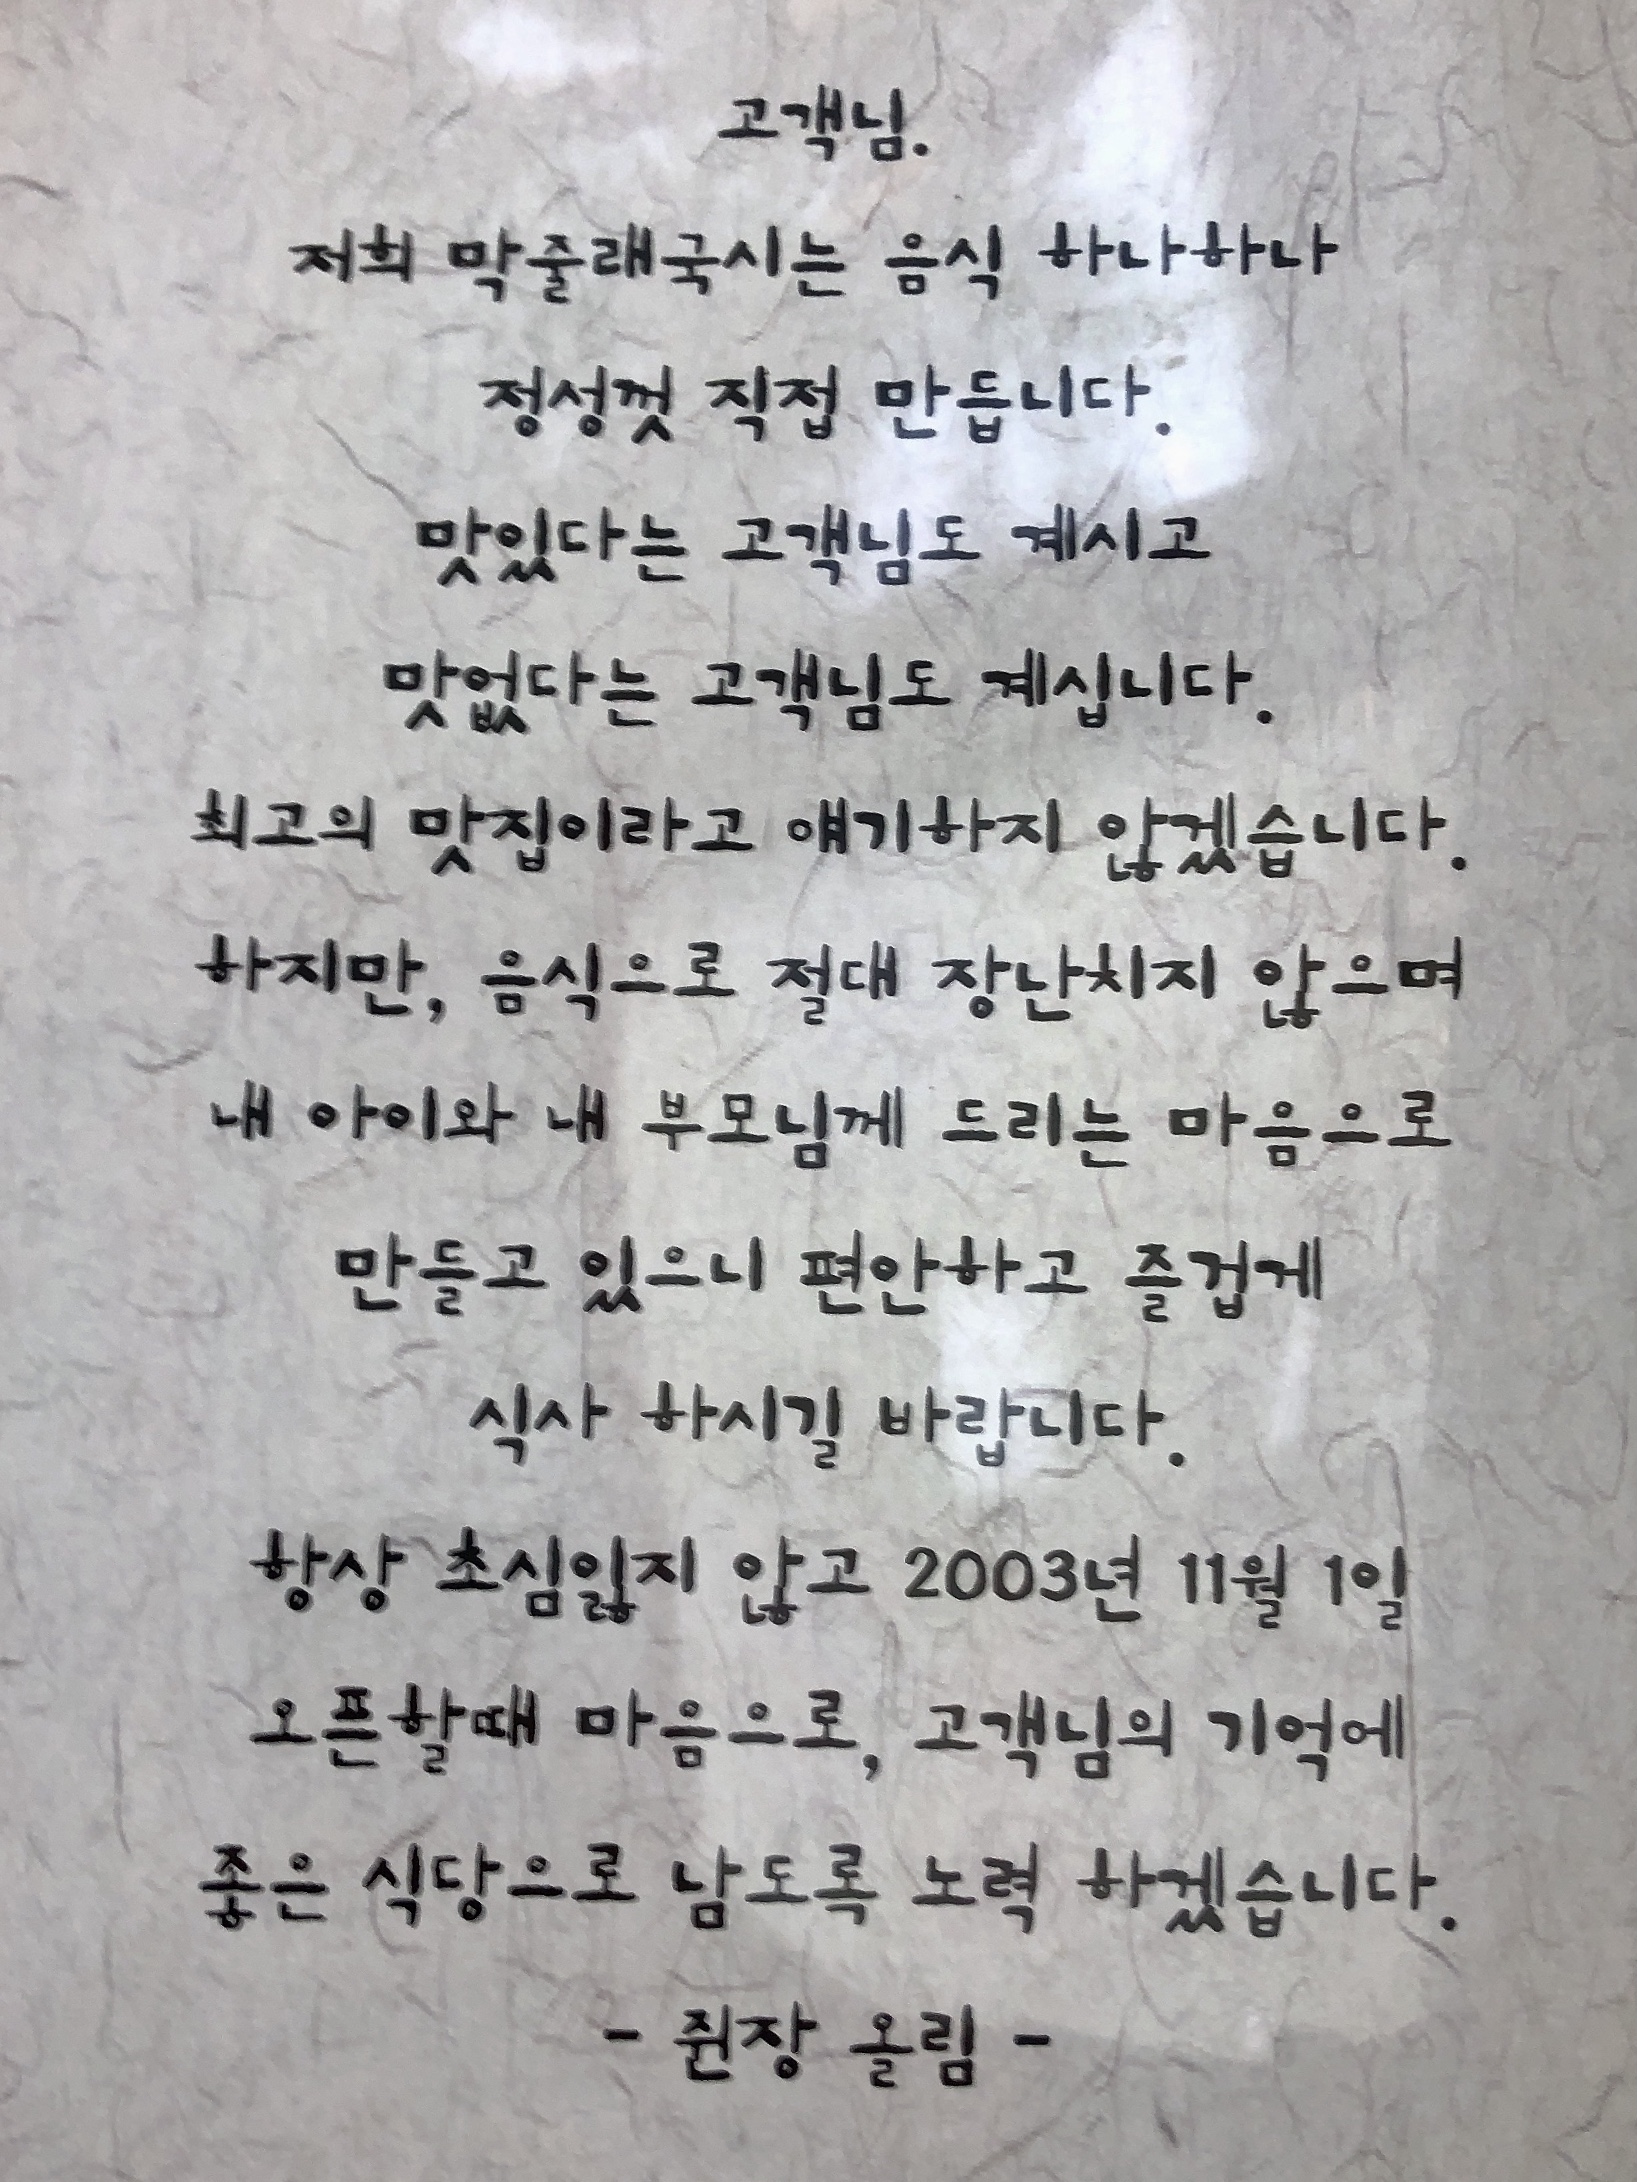 고객님.
저희 막줄래국시는 음식 하나하나
정성껏 직접 만듭니다.
맛있다는 고객님도 계시고
맛없다는 고객님도 계십니다.
최고의 맛집이라고 얘기하지 않겠습니다.
하지만, 음식으로 절대 장난치지 않으며
내 아이와 내 부모님께 드리는 마음으로
만들고 있으니 편안하고 즐겁게
식사 하시길 바랍니다.
항상 초심잃지 않고 2003년 11월 1일
오픈할때 마음으로, 고객님의 기억에
좋은 식당으로 남도록 노력 하겠습니다.
- 쥔장 올림 -